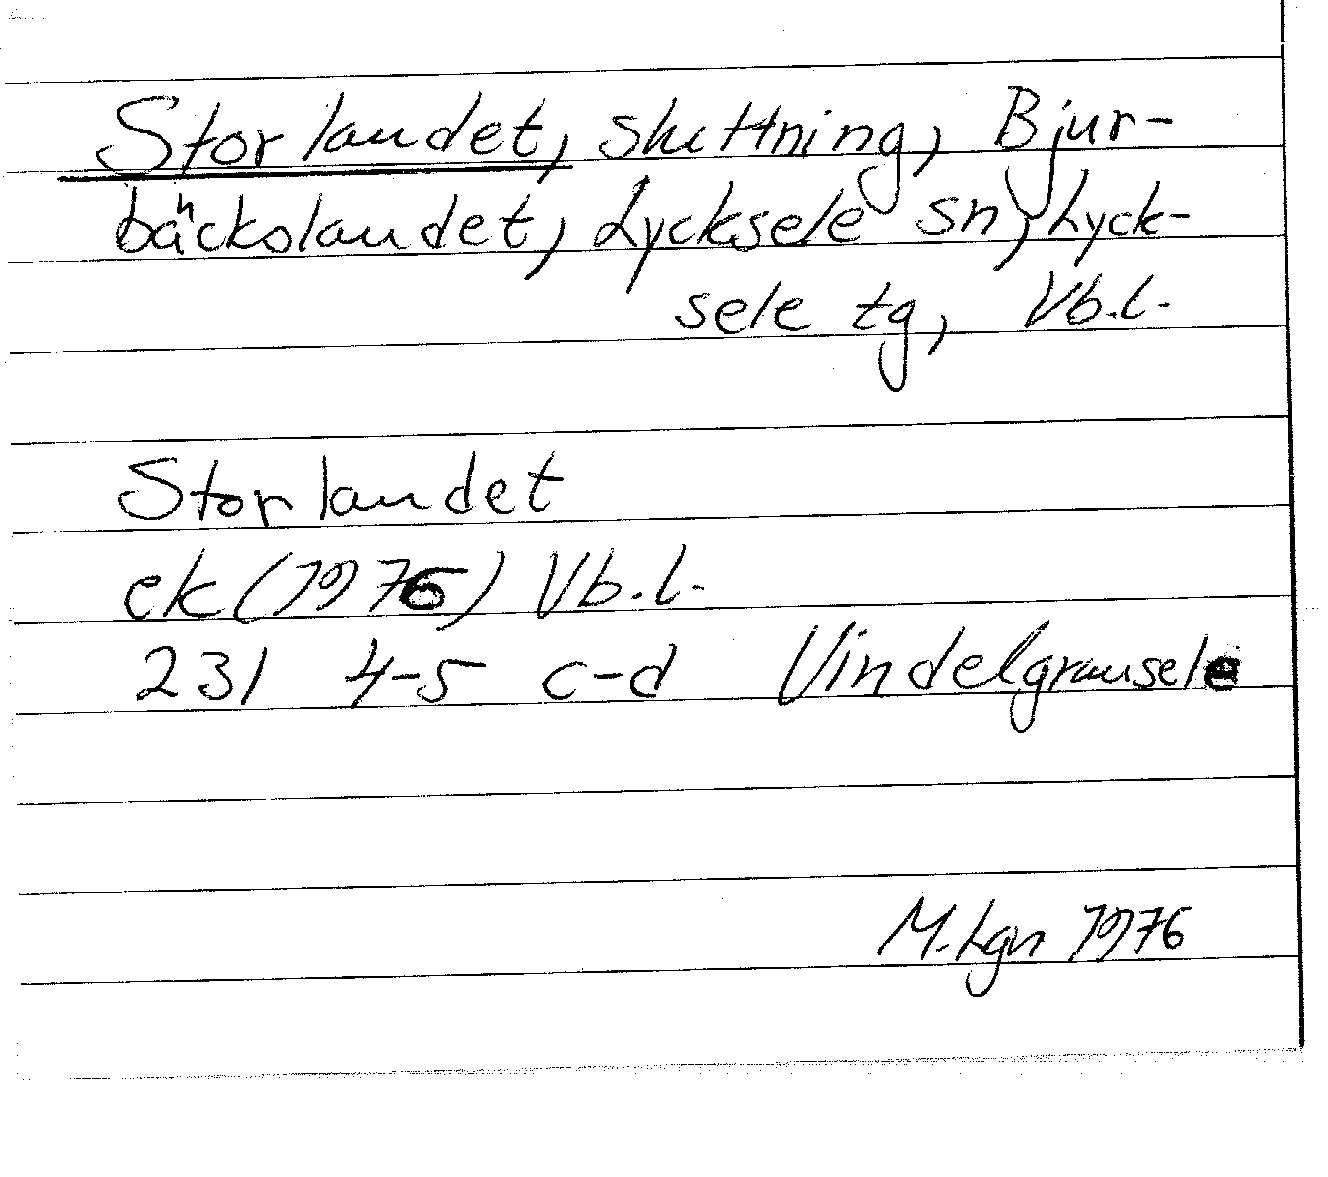 Storlandet, sluttning, Bjur-
bäckslandet, Lycksele sn, Lyck-
sele tg, Vb.l.
Storlandet
ek (1976) Vb.l.
231 4-5 c-d Vindelgransele
M. Lgn 1976